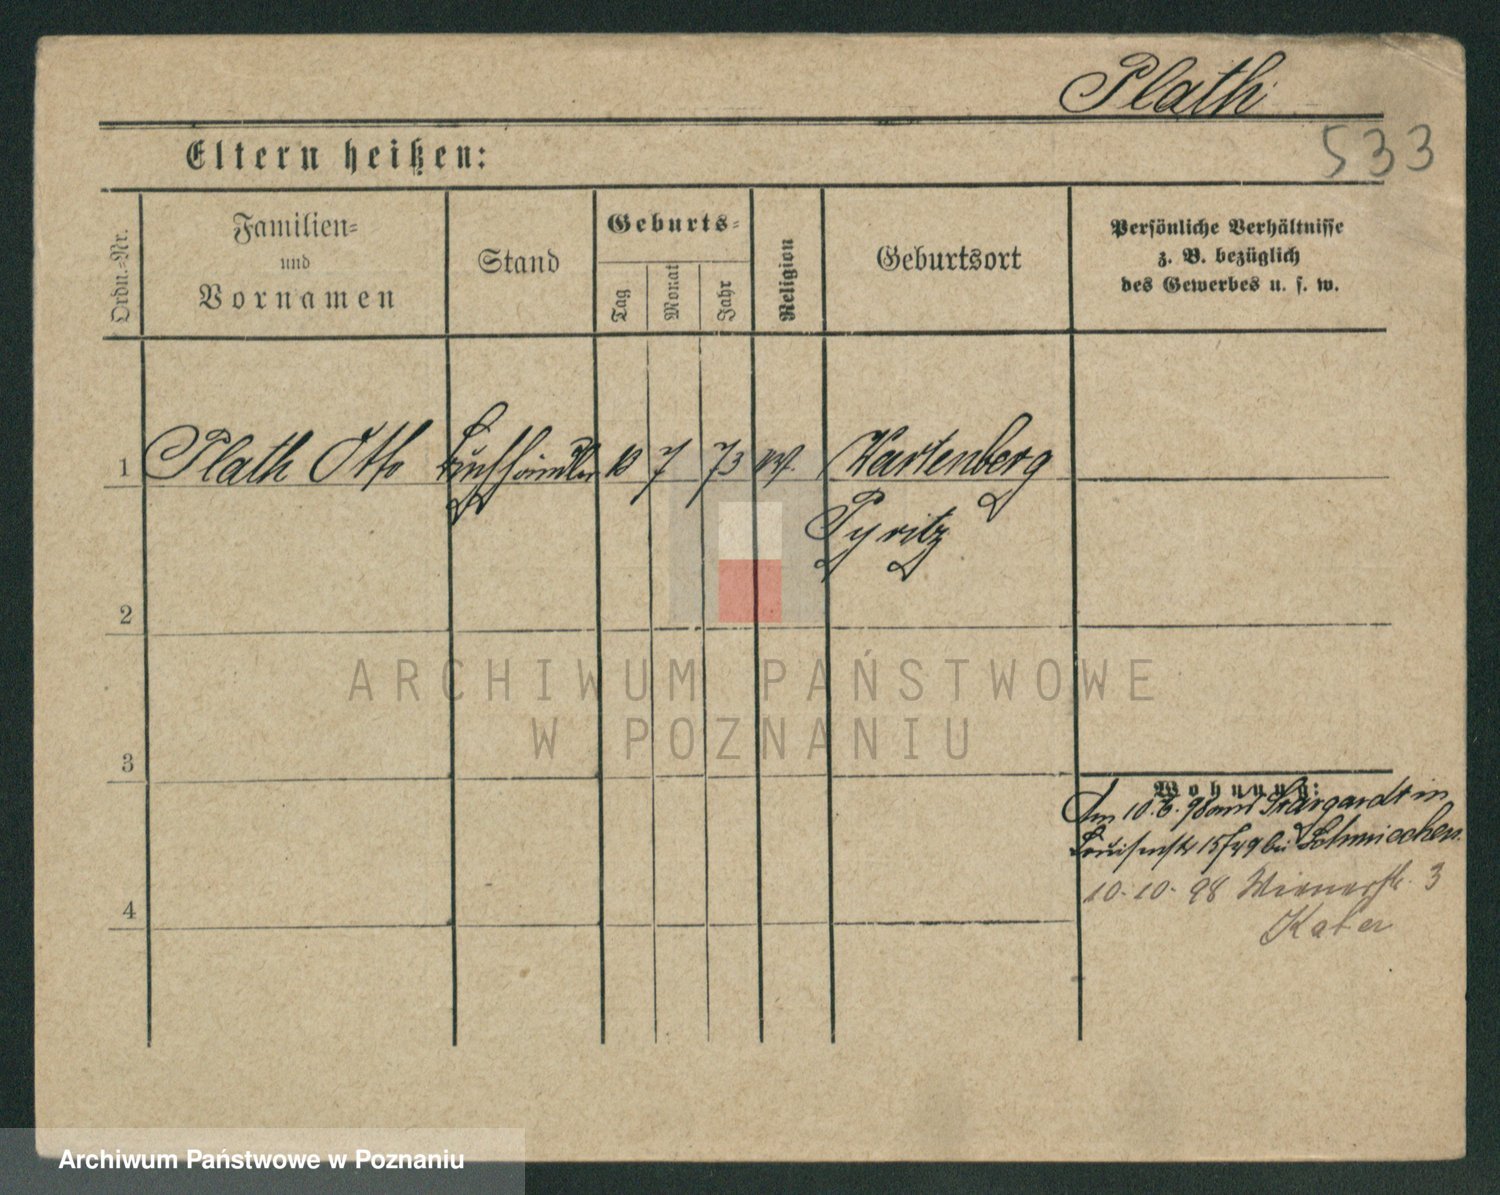 Plath
533
Eltern heißen:
Ordn.-Nr.
Familien- und Vornamen
Stand
Geburts-
Tag
Monat
Jahr
Religion
Geburtsort
Persönliche Verhältnisse
z. B. bezüglich
des Gewerbes u. s. w.
1 Plath Otto Buchhändler 7 73 Wartenberg
Pyritz
2
ARCHIWUM PAŃSTWOWE
W POZNANIU
3
Wohnung:
Am 10.6.98 aus Stargardt in
Louisenstr 15/49 bei
4
10-10-98 Wienerstr. 3
Kater
Archiwum Państwowe w Poznaniu